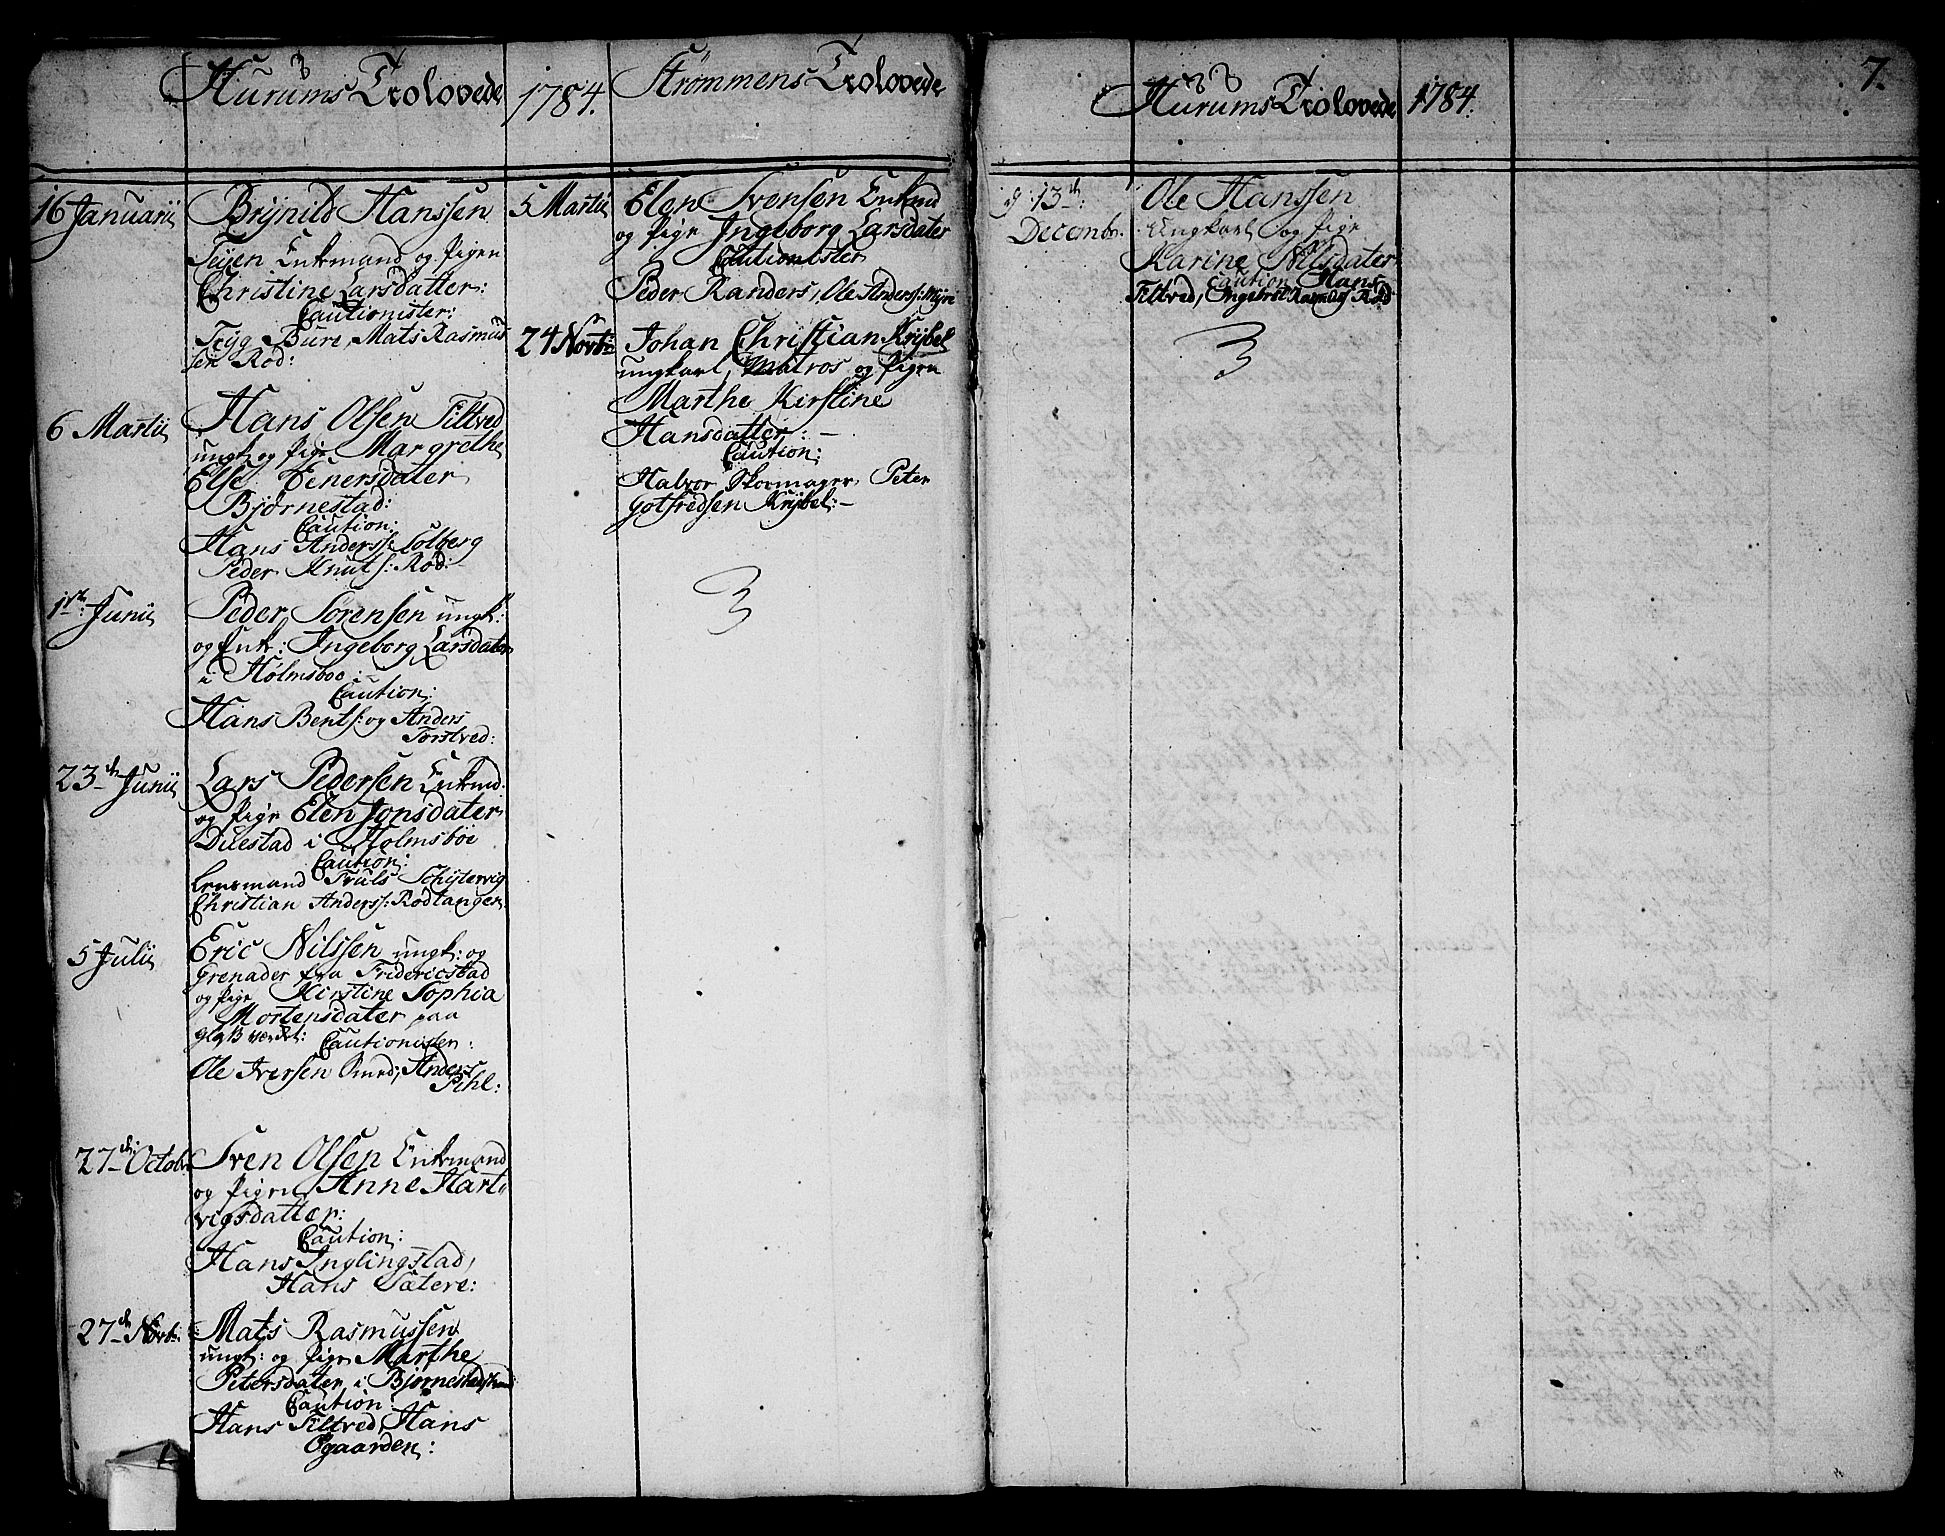 Hurums Trolovede
1784.
16 Januarii
Brÿnild Hanssen
Teien Enkemand og Pigen
Christine Larsdatter:
Cautionister:
Tryg Bure, Mats Rasmus
sen Rød:
6 Martii
Hans Olsen Tiltved
ungk og Pige Margrethe
Else Eenersdater
Bjørnestad:
Caution:
Hans Anderss: Solberg
Peder Knuts: Rød:
1ste Junii
Peder Sørensen ungk:
og Enk: Ingeborg Larsdater
i Holmsboe:
Caution:
Hans Bents: og Anders
Torstved:
23de Junii
Lars Pedersen Enkmd.
og Pige Elen Jonsdater
Duestad i Holmsbøe
Caution:
Lensmand Truls Schÿtervig
Christian Anderss: Rødtangen
5 Julii
Eric Nilssen ungk: og
Grenader fra Fridericstad
og Pige Kirstine Sophia
Mortensdater paa
Caution­isten:
Ole Iversen Smed, Anders
Pihl:
27de Octobr
Sven Olsen Enkemand
og Pigen Anne Hart
vigsdatter:
Caution:
Hans Inglingstad,
Hans Sætere:
27de Novb:
Mats Rasmussen
ungk: og Pige Marthe
Petersdater i Bjørnestad
Caution:
Hans Tiltved, Hans
Ogaarden:
Strømmens Trolovede
5 Martii
Elen Svensen Enkmd
og Pige Ingeborg Larsdater
Cautionister
Peder Randers, Ole Anderss: Myre
24 Novb:
Johan Christian Krÿbel
ungkarl, Matros og Pigen
Marthe Kirstine
Hansdatter: –
Caution:
Halvor Skoemager, Peter
Gotfredsen Krÿbel: –
3
Hurums Trolovede
1784.
7.
d: 13de:
Decembr.
Ole Hanssen
Ungkarl og Pige
Karine Nilsdater
Caution Hans
Tiltved, Ingebret Rasmuss Rød
3